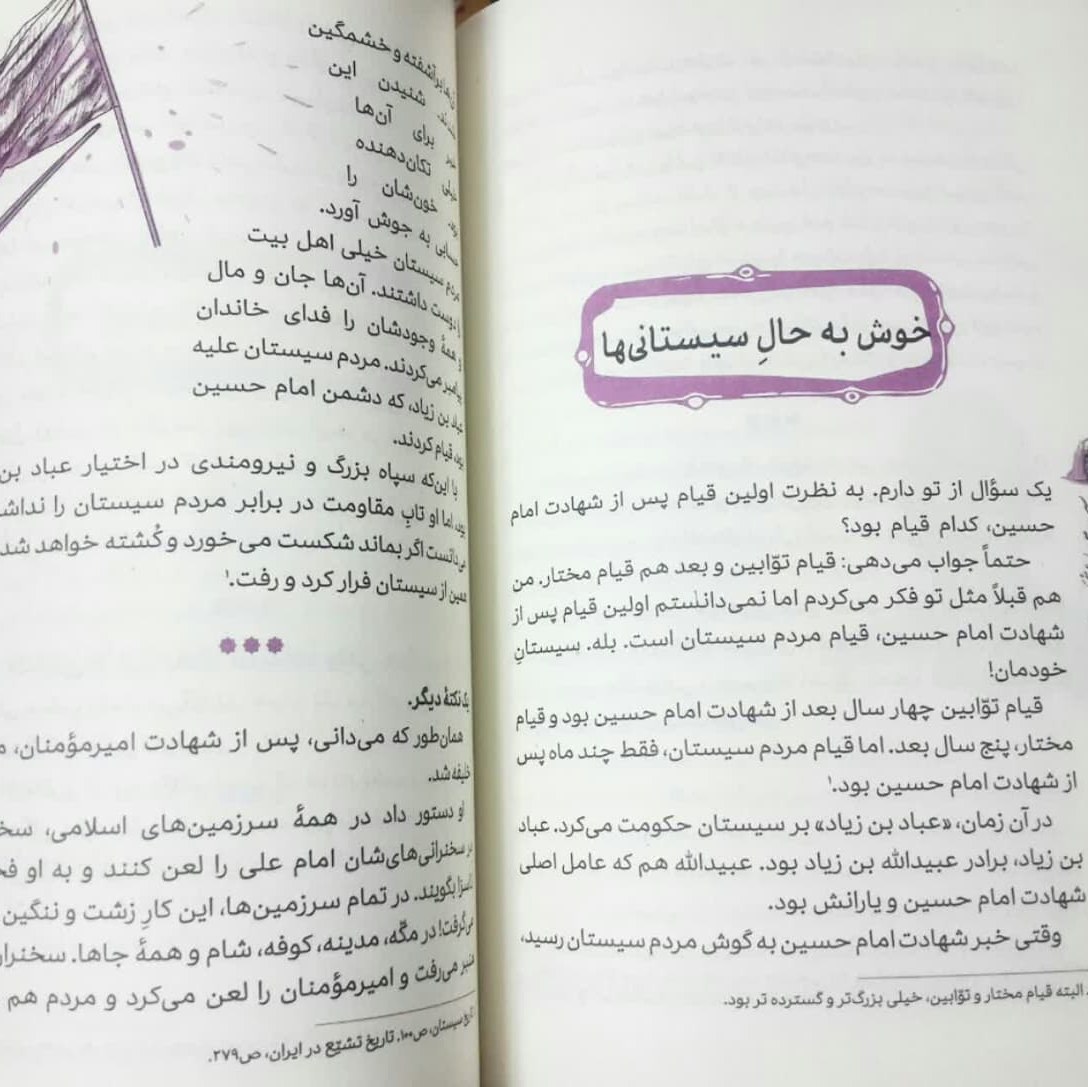 خوش به حالِ سیستانی‌ها
یک سؤال از تو دارم. به نظرت اولین قیام پس از شهادت امام
حسین، کدام قیام بود؟
حتماً جواب می‌دهی: قیام توّابین و بعد هم قیام مختار. من
هم قبلاً مثل تو فکر می‌کردم اما نمی‌دانستم اولین قیام پس از
شهادت امام حسین، قیام مردم سیستان است. بله. سیستانِ
خودمان!
قیام توّابین چهار سال بعد از شهادت امام حسین بود و قیام
مختار، پنج سال بعد. اما قیام مردم سیستان، فقط چند ماه پس
از شهادت امام حسین بود.۱
در آن زمان، «عباد بن زیاد» بر سیستان حکومت می‌کرد. عباد
بن زیاد، برادر عبیدالله بن زیاد بود. عبیدالله هم که عامل اصلی
شهادت امام حسین و یارانش بود.
وقتی خبر شهادت امام حسین به گوش مردم سیستان رسید،
البته قیام مختار و توّابین، خیلی بزرگ‌تر و گسترده تر بود.
برآشفته و خشمگین
شنیدن این
برای آن‌ها
تکان‌دهنده
خون‌شان را
به جوش آورد.
مردم سیستان خیلی اهل بیت
را دوست داشتند. آن‌ها جان و مال
و همهٔ وجودشان را فدای خاندان
پیامبر می‌کردند. مردم سیستان علیه
عباد بن زیاد، که دشمن امام حسین
بود، قیام کردند.
با این‌که سپاه بزرگ و نیرومندی در اختیار عباد بن
بود، اما او تابِ مقاومت در برابر مردم سیستان را
می‌دانست اگر بماند شکست می‌خورد و کُشته خواهد شد
همین از سیستان فرار کرد و رفت.۱
یک نکتهٔ دیگر.
همان‌طور که می‌دانی، پس از شهادت امیرمؤمنان،
خلیفه شد.
او دستور داد در همهٔ سرزمین‌های اسلامی،
در سخنرانی‌های‌شان امام علی را لعن کنند و به او
ناسزا بگویند. در تمام سرزمین‌ها، این کارِ زشت و ننگین
می‌گرفت! در مکّه، مدینه، کوفه، شام و همهٔ جاها.
منبر می‌رفت و امیرمؤمنان را لعن می‌کرد و مردم هم
تاریخ سیستان، ص۱۰۰. تاریخ تشیّع در ایران، ص۲۷۹.